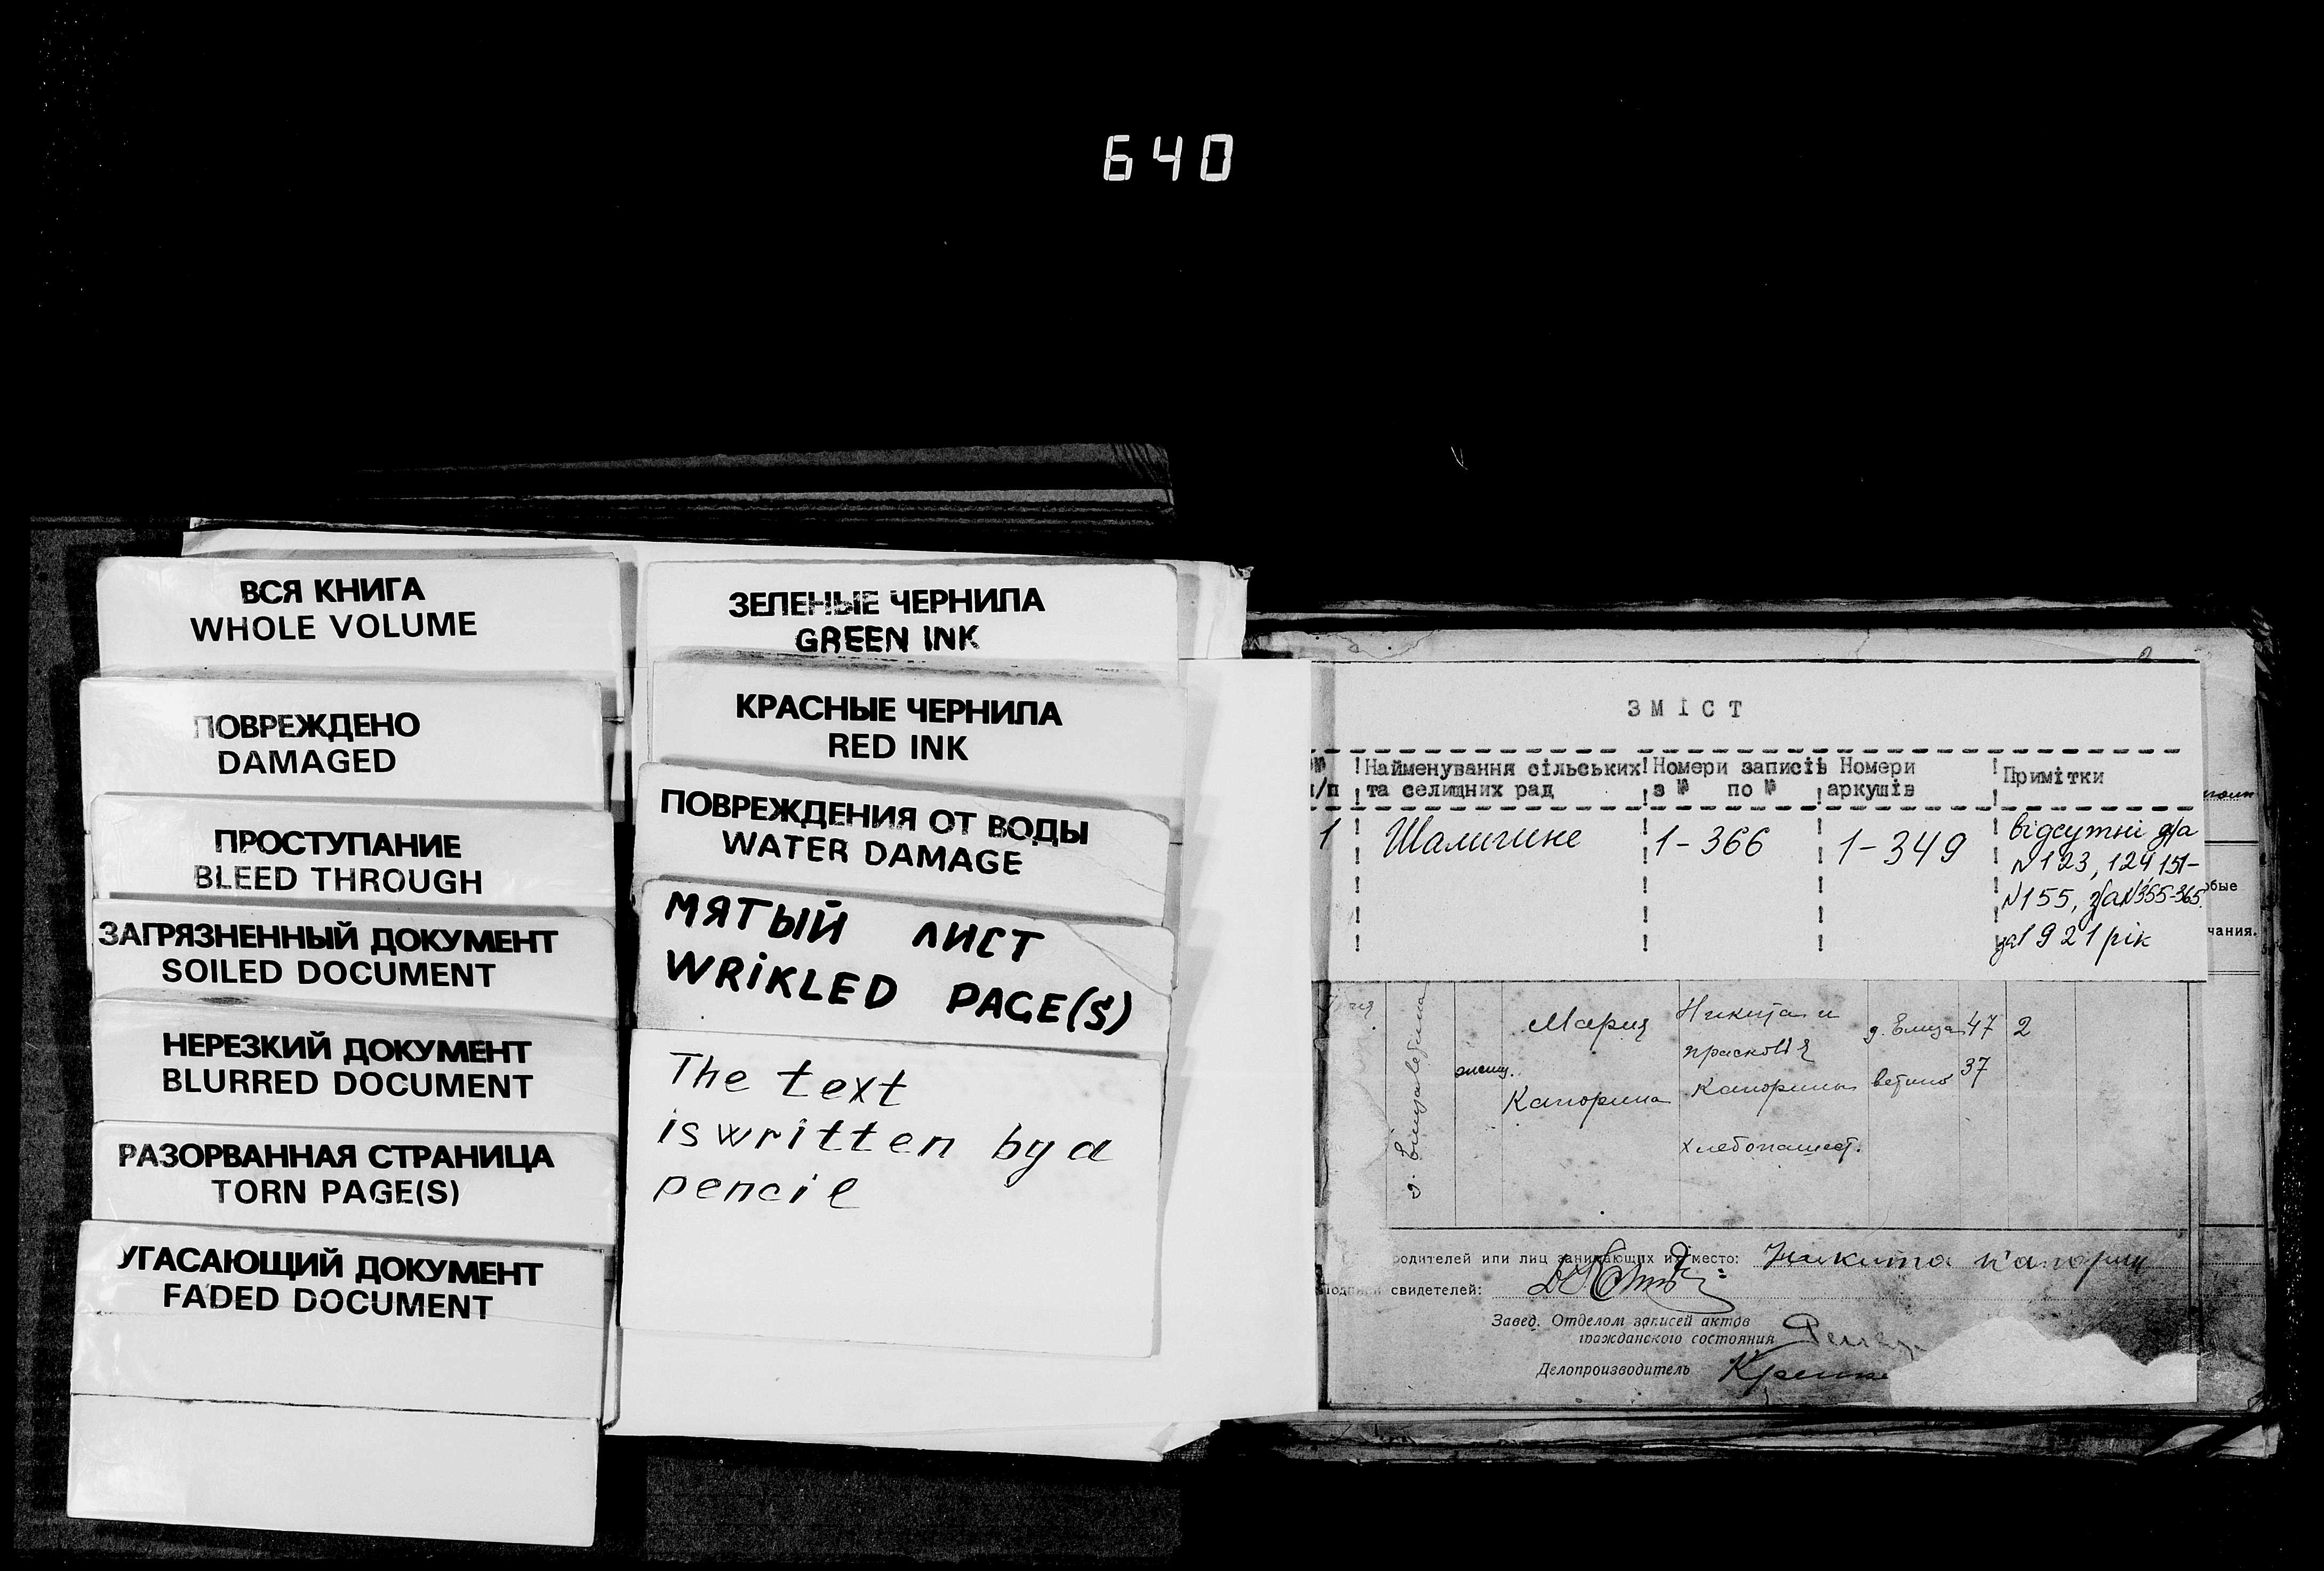 640
ВСЯ КНИГА
WHOLE VOLUME
ПОВРЕЖДЕНО
DAMAGED
ПРОСТУПАНИЕ
BLEED THROUGH
ЗАГРЯЗНЕННЫЙ ДОКУМЕНТ
SOILED DOCUMENT
НЕРЕЗКИЙ ДОКУМЕНТ
BLURRED DOCUMENT
РАЗОРВАННАЯ СТРАНИЦА
TORN PAGE(S)
УГАСАЮЩИЙ ДОКУМЕНТ
FADED DOCUMENT
ЗЕЛЕНЫЕ ЧЕРНИЛА
GREEN INK
КРАСНЫЕ ЧЕРНИЛА
RED INK
ПОВРЕЖДЕНИЯ ОТ ВОДЫ
WATER DAMAGE
МЯТЫЙ ЛИСТ
WRIKLED PAGE(S)
The text
is written by a
pencil
ЗМІСТ
№ Найменування сільських Номери записів Номери Примітки
п/п та селищних рад з № по № аркушів
1 Шалигине 1-366 1-349 відсутні а/з
N123, 124, 151-
N155, а/з N355-365
за 1921 рік
Мария Никита и д. Елиза 47 2
женщ. Прасковья 37
Капорина Капорины ветино
хлебопашест.
д. Елизаветина
родителей или лиц заничающих их место: Никита Капорин
Подписи свидетелей:
Завед. Отделом записей актов
гражданского состояния
Делопроизводитель